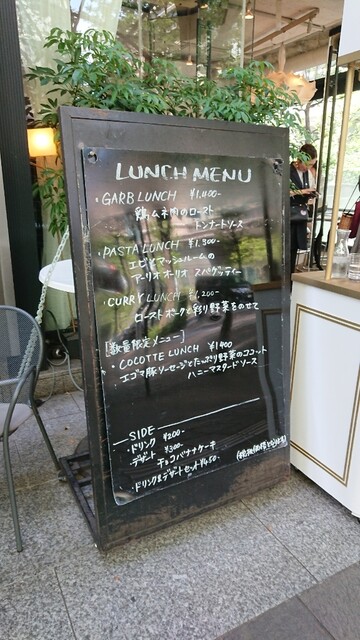 LUNCH MENU
・GARB LUNCH ¥1.400-
鶏ムネ肉のロースト
トンナートソース
・PASTA LUNCH ¥1.300-
エビとマッシュルームの
アーリオオーリオ スパゲッティー
・CURRY LUNCH ¥1.200-
ローストポークと彩り野菜をのせて
[数量限定メニュー]
・COCOTTE LUNCH ¥1400
エゴマ豚ソーセージとたっぷり野菜のココット
ハニーマスタードソース
SIDE
・ドリンク ¥200-
・デザート ¥300-
チョコバナナケーキ
・ドリンク&デザートセット ¥450.